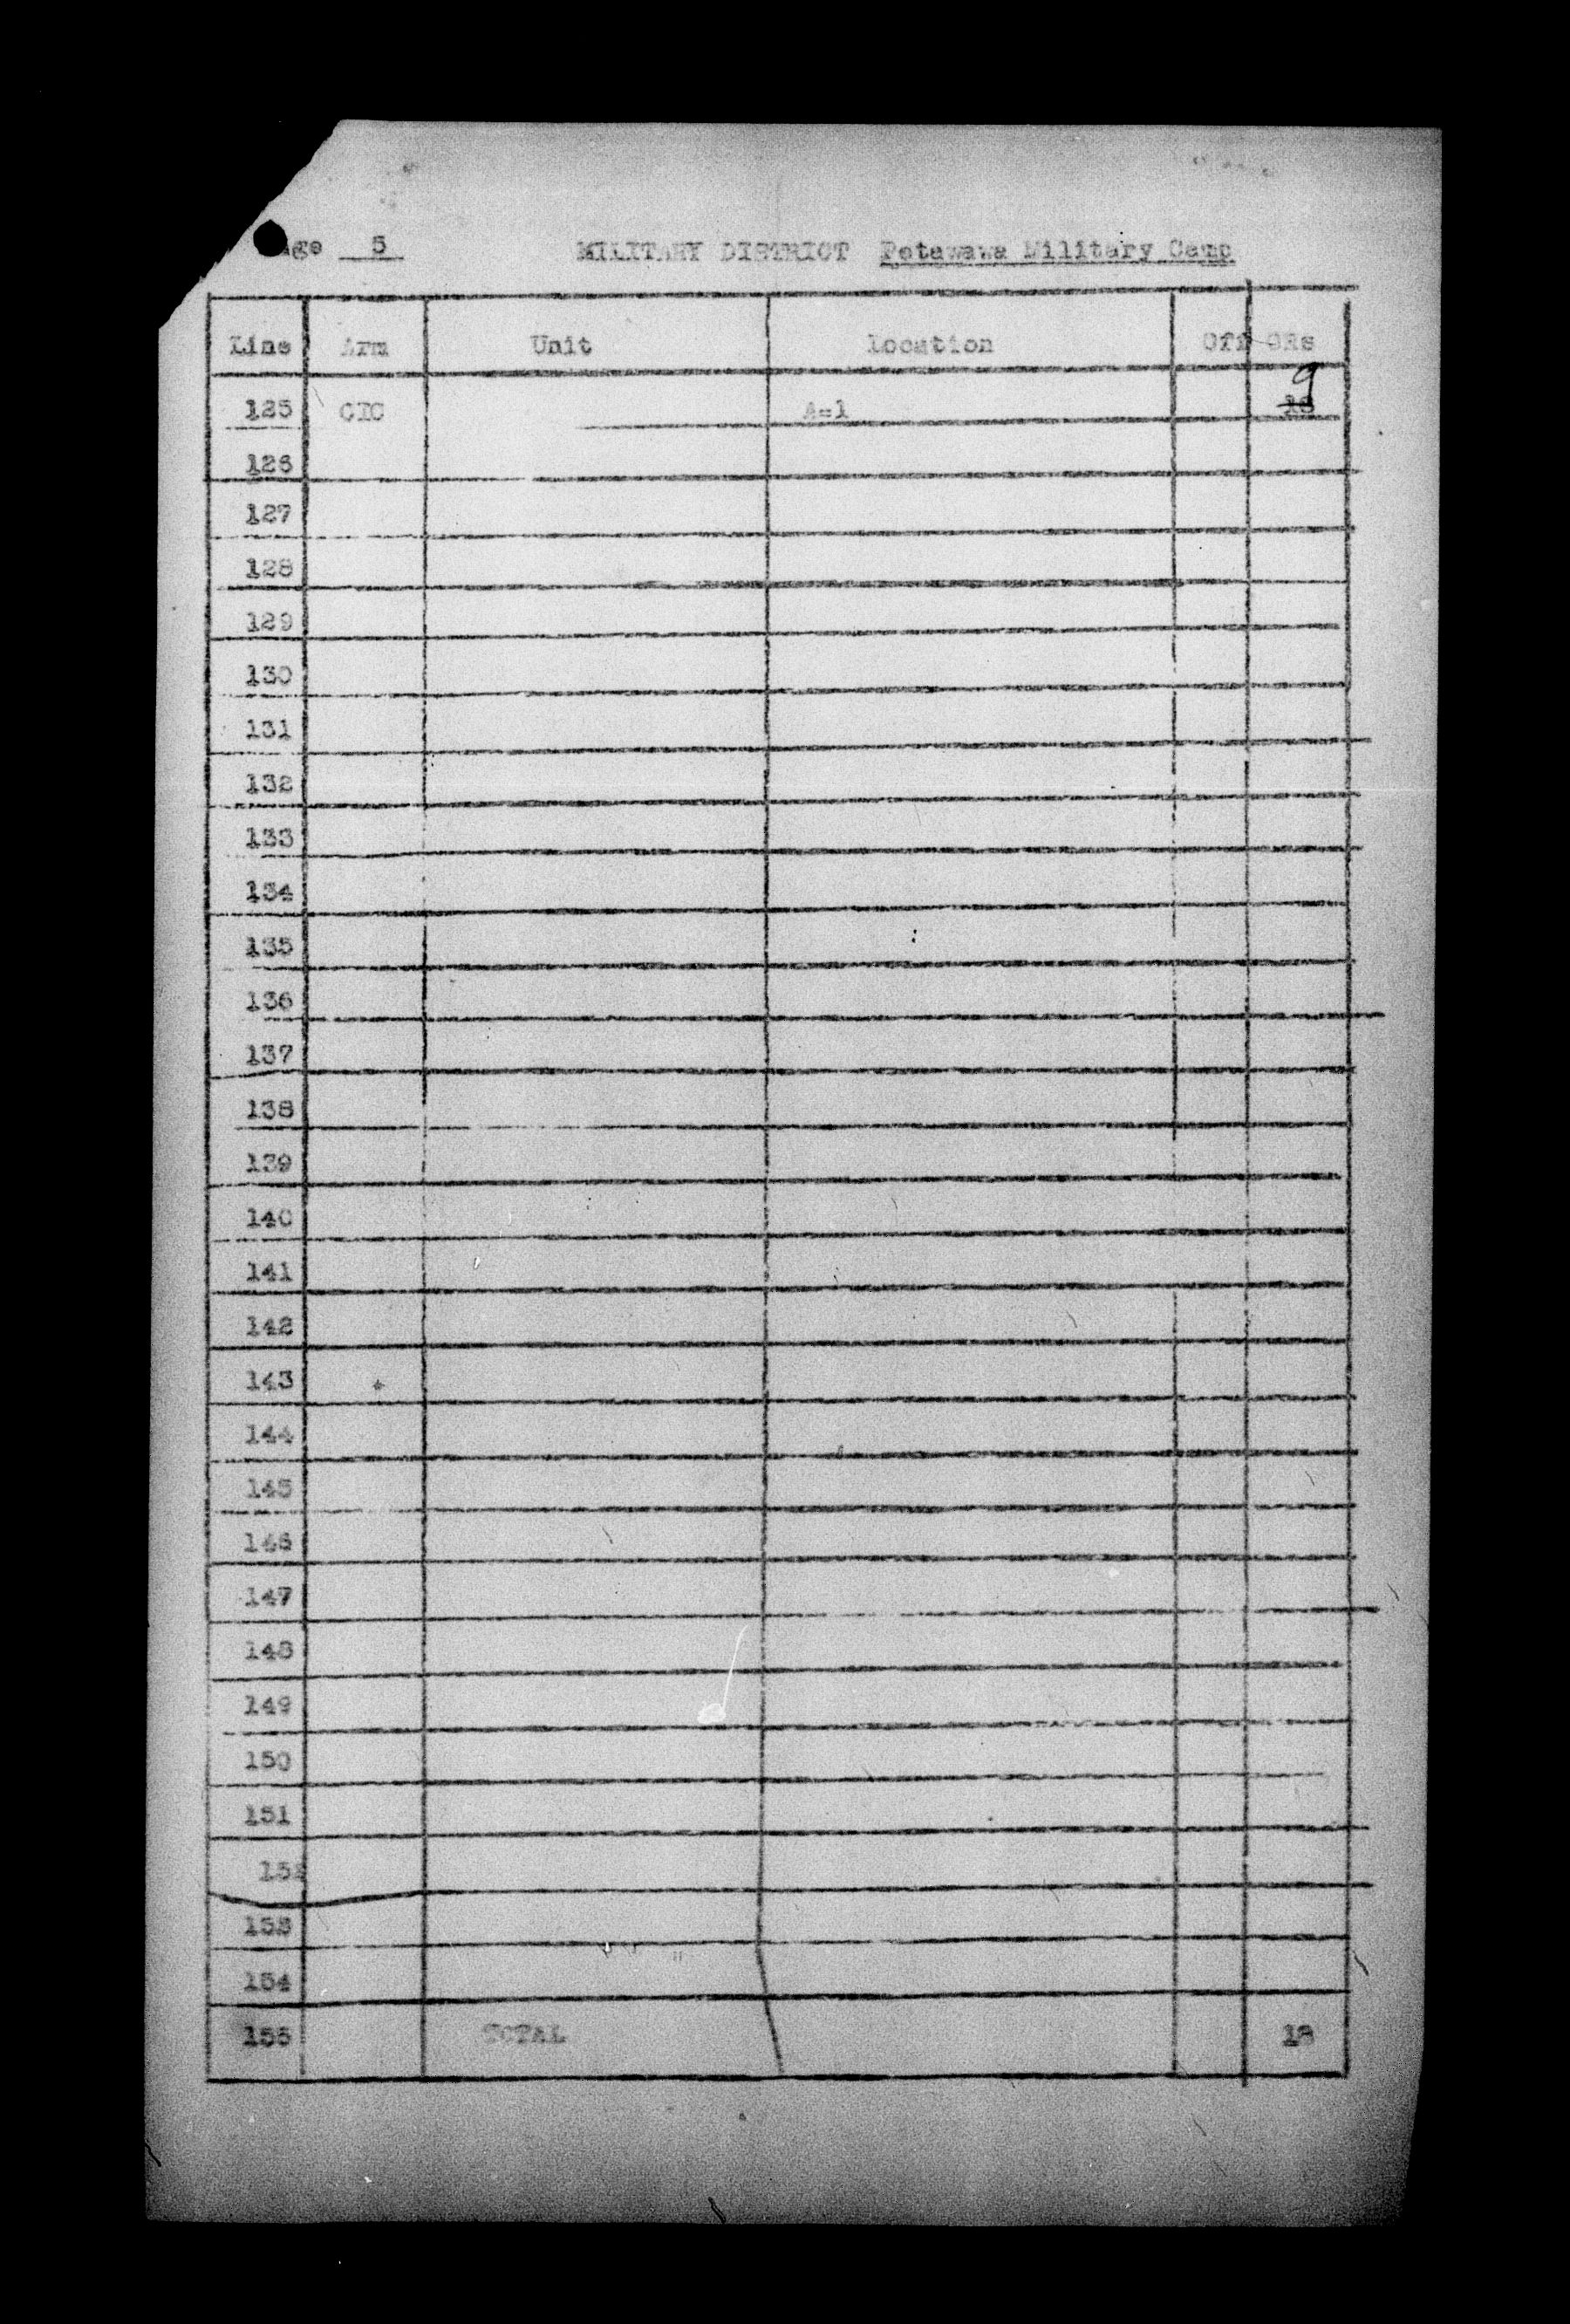 Page 5 MILITARY DISTRICT Petawawa Military Camp
Line Arm Unit Location Off ORs
9
125 CIC A=1 18
126
127
128
129
130
131
132
133
134
135
136
137
138
139
140
141
142
143
144
145
146
147
148
149
150
151
152
153
154
155 TOTAL 18